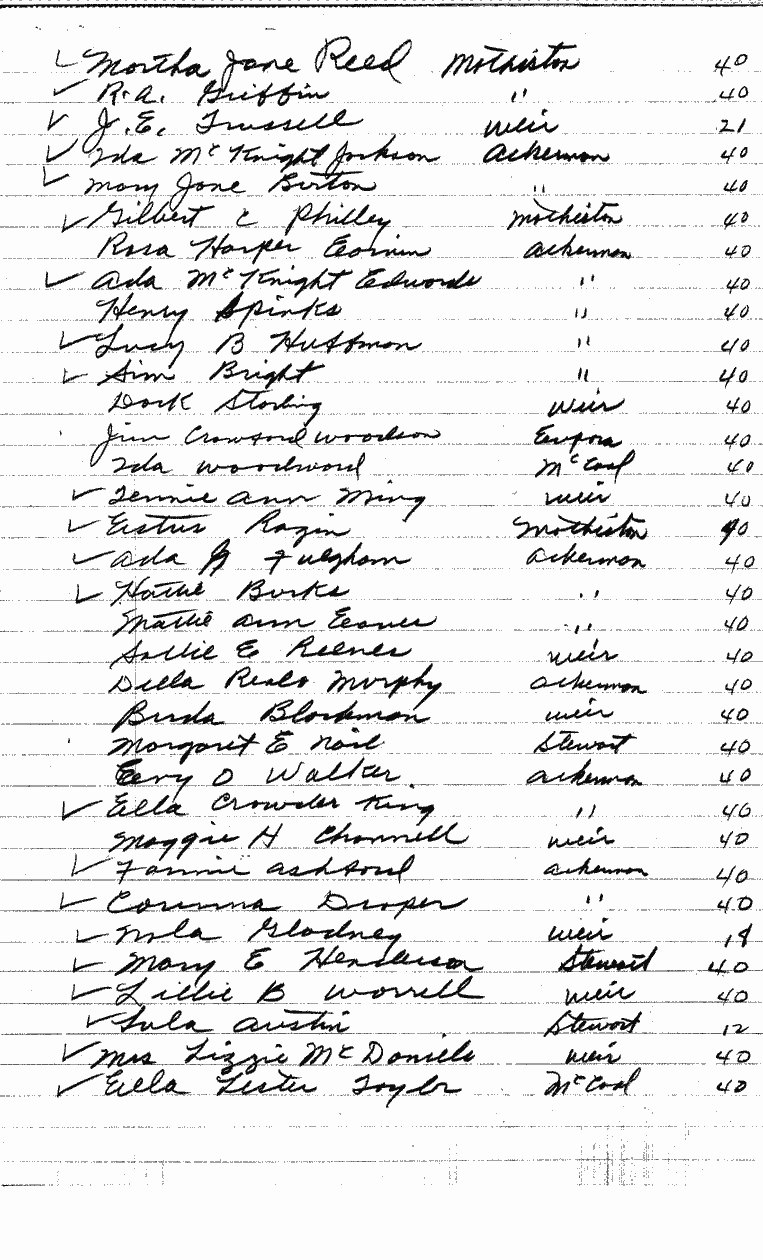 ✓ Martha Jane Reed Mathiston 40
✓ R.A. Griffin " 40
✓ J.E. Trussell Weir 21
✓ Ida McKnight Jackson Ackerman 40
✓ Mary Jane Burton " 40
✓ Gilbert C Philley Mathiston 40
Rosa Harper Ackerman 40
✓ Ada McKnight Edwards " 40
Henry Spinks " 40
✓ Lucy B Huffman " 40
✓ Sim Bright " 40
Dock Starling Weir 40
Jim Crawford Woodson Eupora 40
Ida Woodward McCool 40
✓ Tennie Ann Ming Weir 40
✓ Razin Mathiston 40
✓ Ada Fulgham Ackerman 40
✓ Hattie Burks " 40
Mattie Ann Eaves " 40
Sallie E Reeves Weir 40
Della Murphy Ackerman 40
Blackman Weir 40
Margaret E Nail Stewart 40
O Walker Ackerman 40
✓ Ella Crowder King " 40
Maggie H Channell Weir 40
✓ Fannie Ashford Ackerman 40
✓ Corinna Draper " 40
✓ Nola Gladney Weir 18
✓ Mary E Henderson Stewart 40
✓ Lillie B Worrell Weir 40
✓ Lula Austin Stewart 12
✓ Mrs Lizzie McDaniels Weir 40
✓ Ella Lester Taylor McCool 40